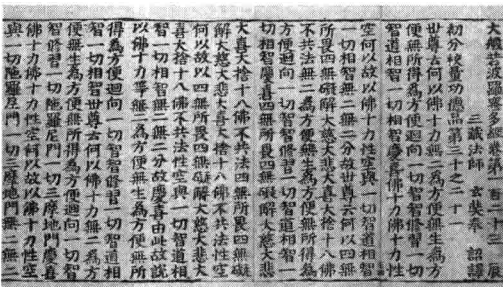 大般若波羅蜜多經卷第一百二十二
三藏法師 玄奘奉 詔譯
初分校量功德品第三十之二十
世尊云何以佛十力無二為方便無生為方
便無所得為方便迴向一切智智修習一切
智道相智一切相智慶喜佛十力佛十力性
空何以故以佛十力性空與一切智道相智
一切相智無二無二分故世尊云何以四無
所畏四無礙解大慈大悲大喜大捨十八佛
不共法無二為方便無生為方便無所得為
方便迴向一切智智修習一切智道相智一
切相智慶喜四無所畏四無礙解大慈大悲
大喜大捨十八佛不共法四無所畏四無礙
解大慈大悲大喜大捨十八佛不共法性空
何以故以四無所畏四無礙解大慈大悲大
喜大捨十八佛不共法性空與一切智道相
智一切相智無二無二分故慶喜由此故說
以佛十力等無二為方便無生為方便無所
得為方便迴向一切智智修習一切智道相
智一切相智世尊云何以佛十力無二為方
便無生為方便無所得為方便迴向一切智
智修習一切陀羅尼門一切三摩地門慶喜
佛十力佛十力性空何以故以佛十力性空
與一切陀羅尼門一切三摩地門無二無二